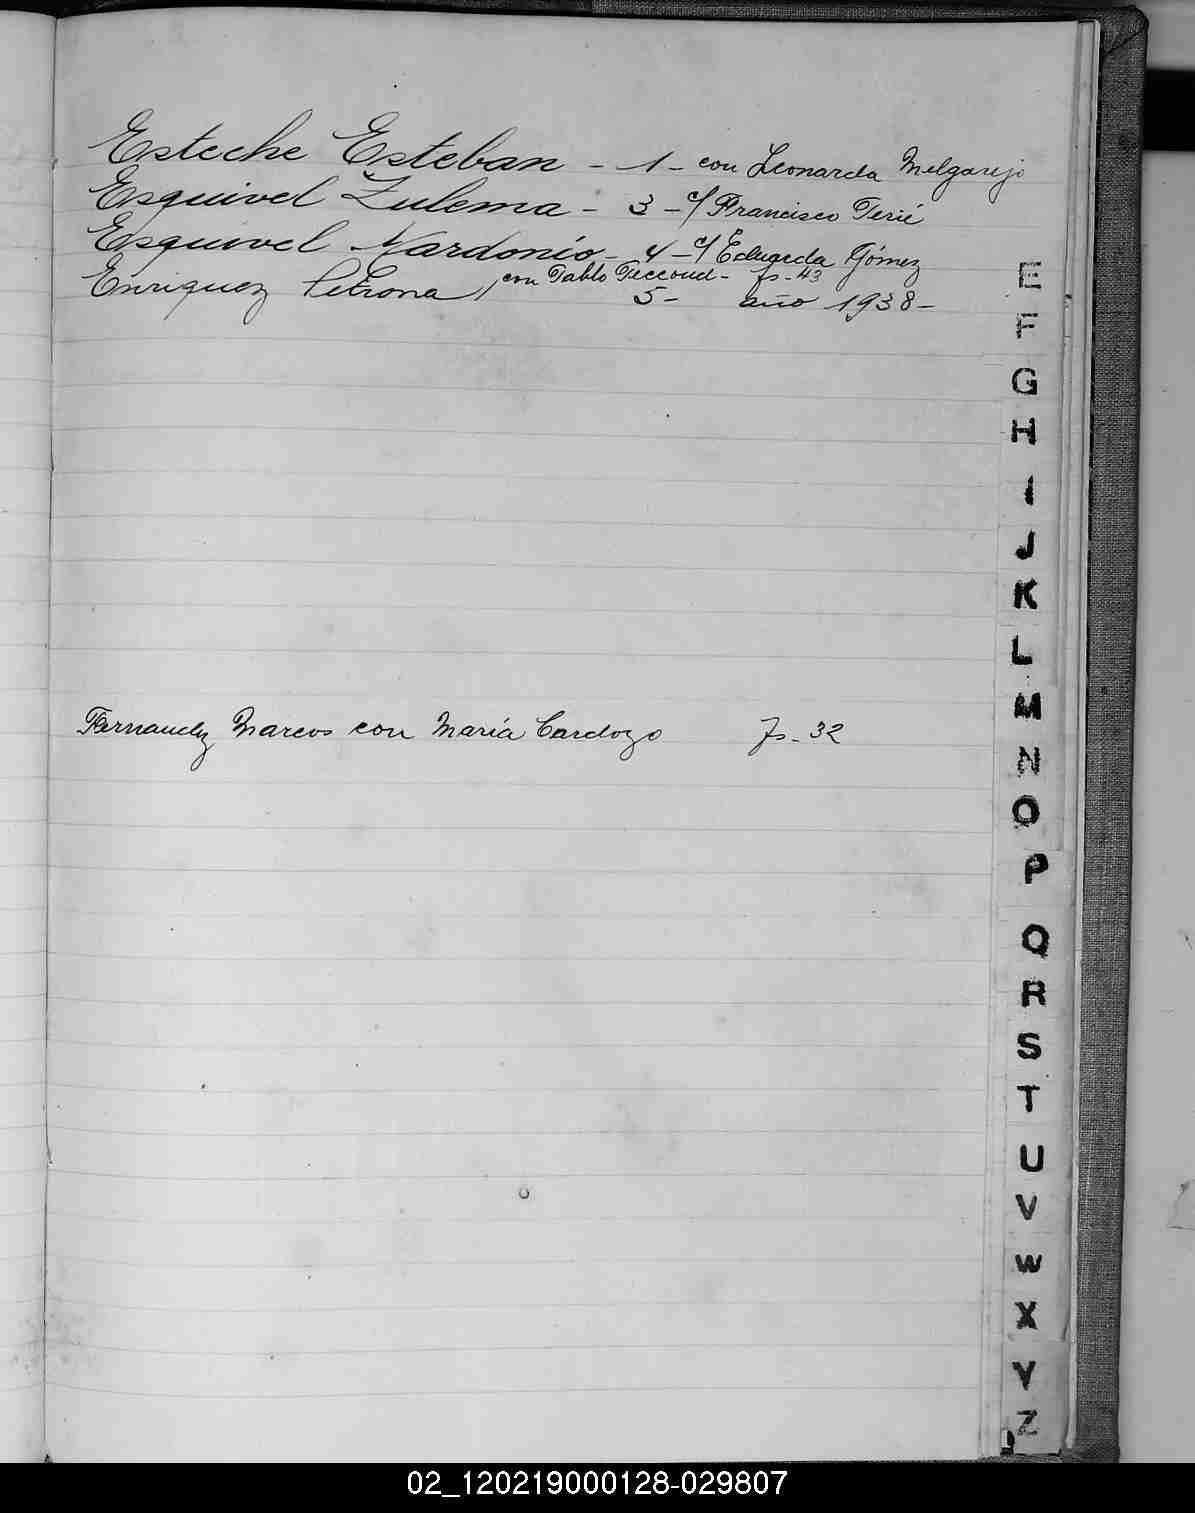 Esteche Esteban - 1 - con Leonarda Melgarejo
Esquivel Zulema - 3 - c/ Francisco Terié
Esquivel Nardonio - 4 - c/ Eduarda Gómez
con Pablo - fs. 43
Enriquez Petrona 5 - año 1938 -
Fernandez Marcos con María Cardozo fs. 32
E
F
G
H
I
J
K
L
M
N
O
P
Q
R
S
T
U
V
W
X
Y
Z
02_120219000128-029807